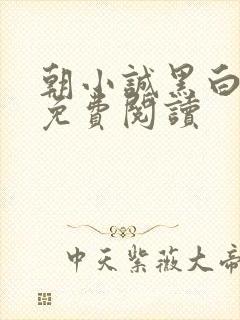 朝小誠黑白
免費閱讀
中天紫薇大帝